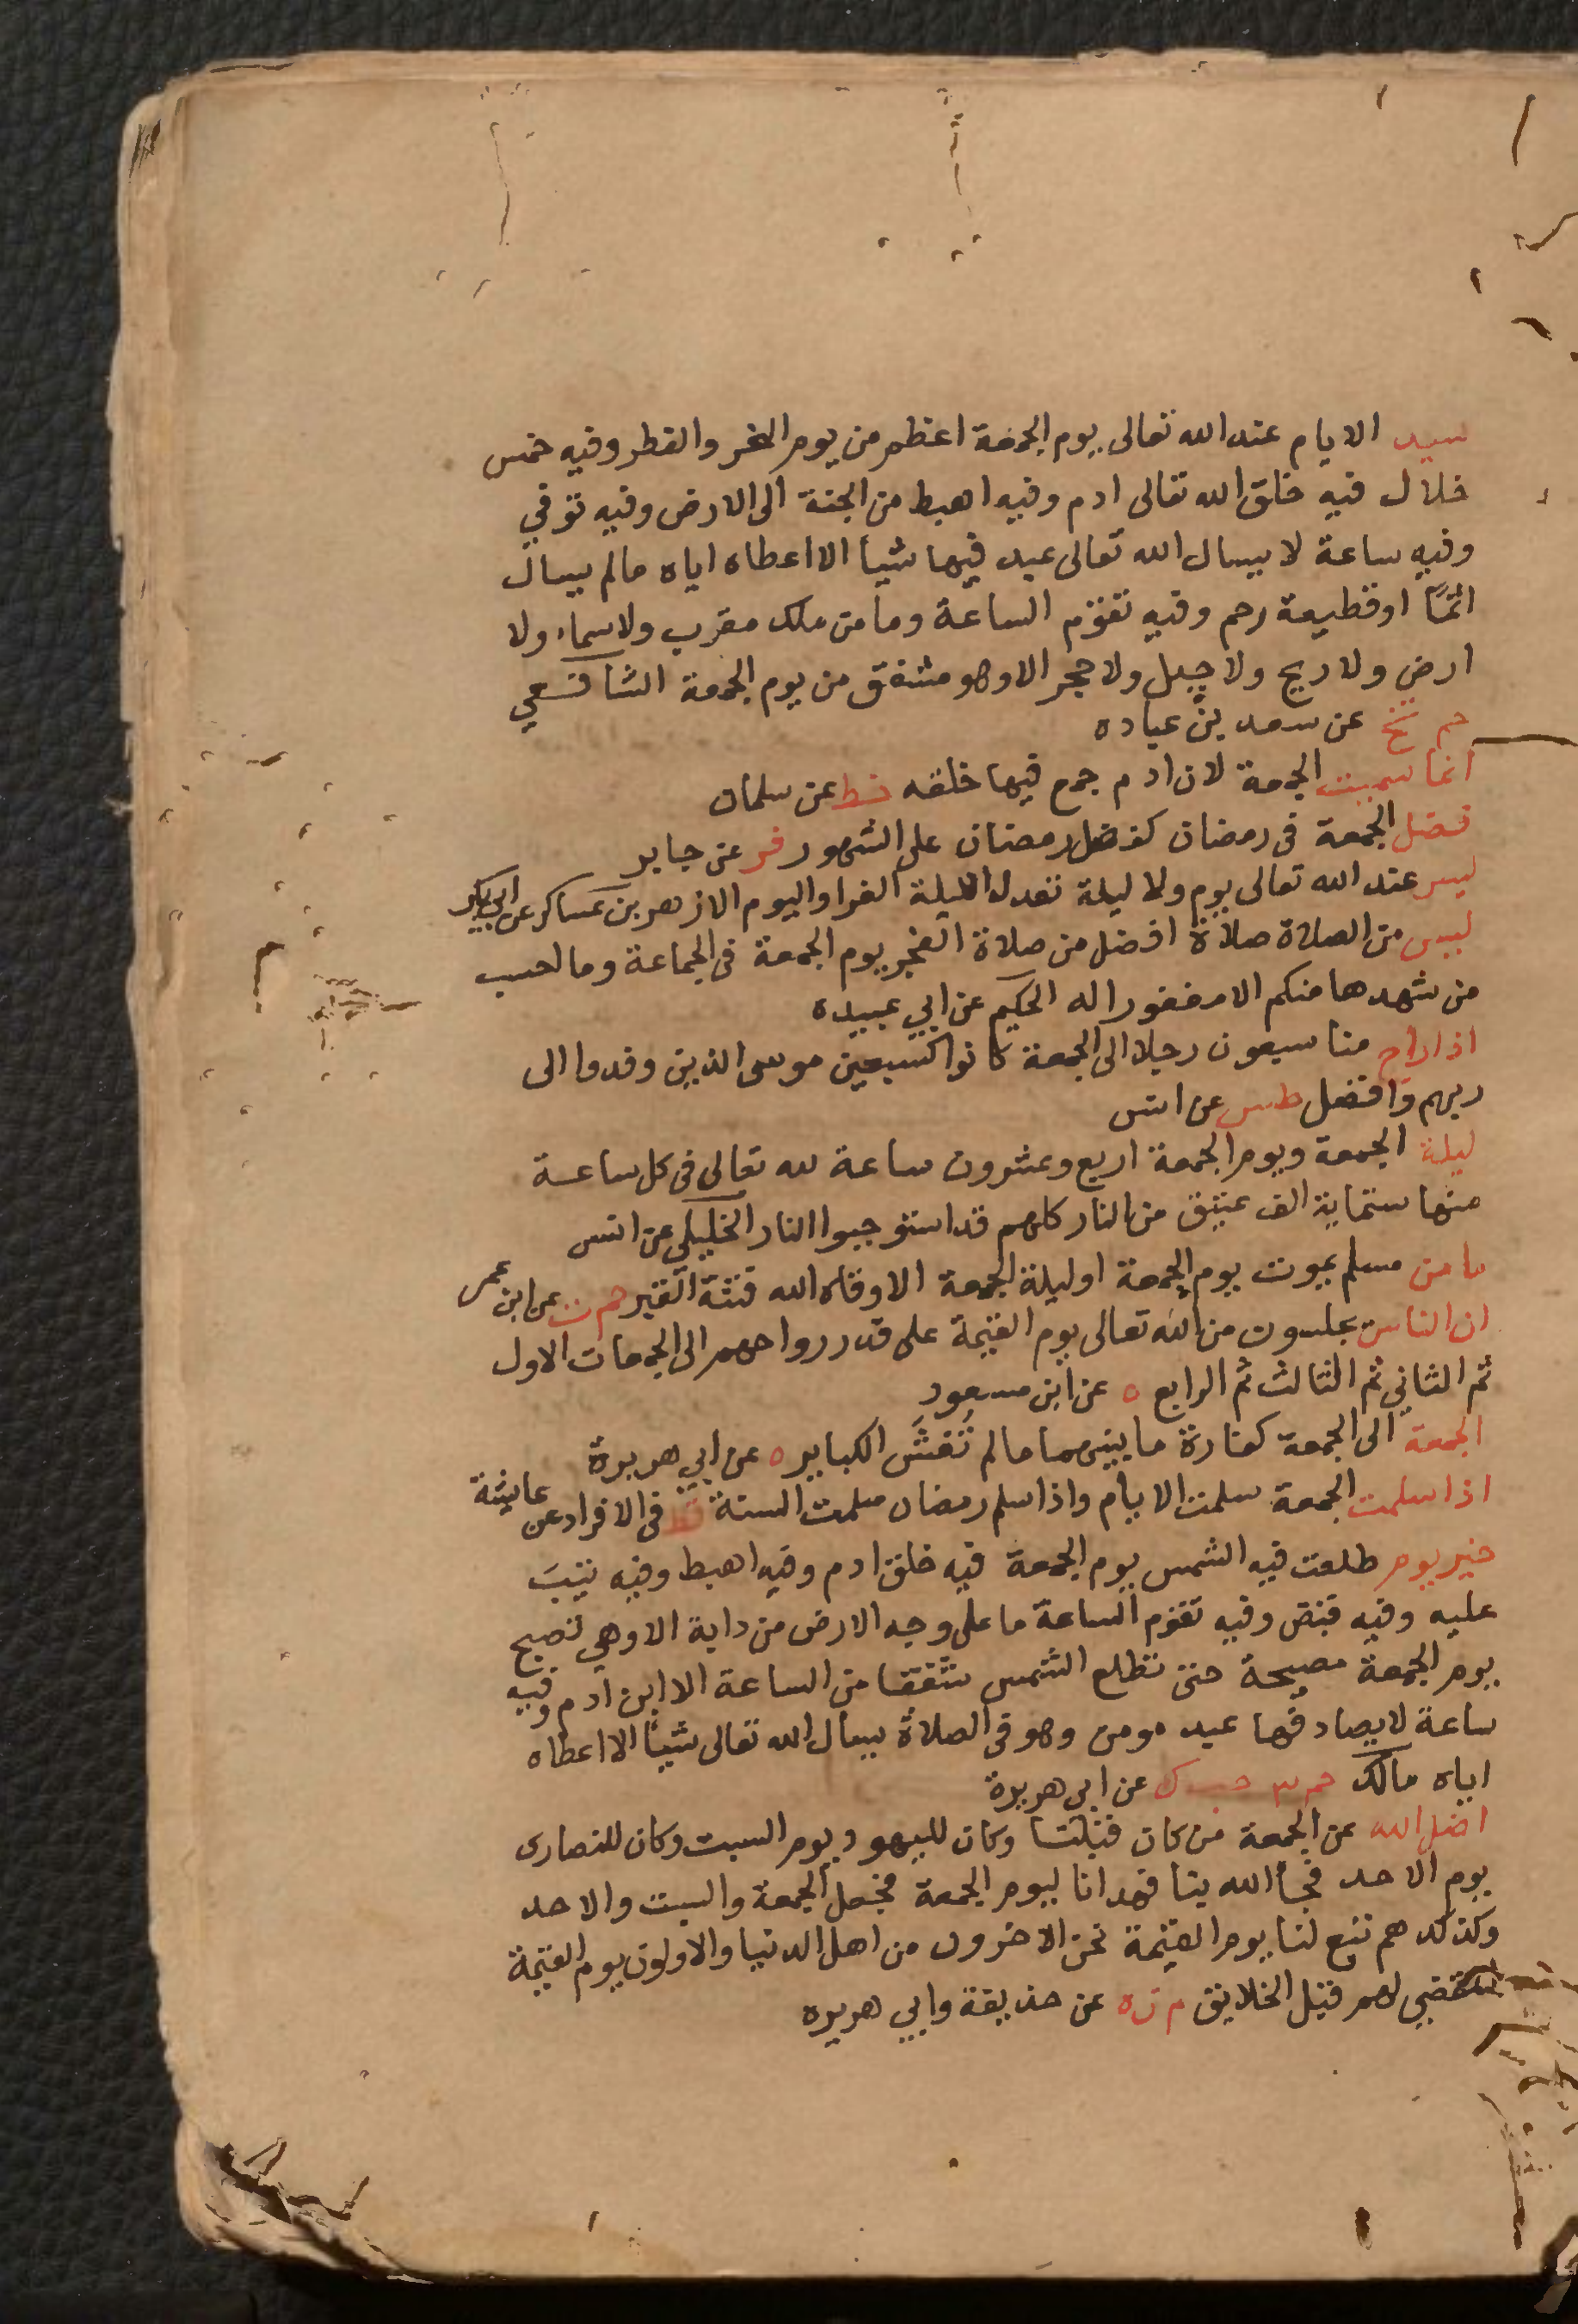 سيد الايام عند الله تعالى يوم الجمعة اعظم من يوم النحر والفطر وفيه خمس
خلال فيه خلق الله تعالى ادم وفيه اهبط من الجنة الى الارض وفيه توفي
وفيه ساعة لا يسال الله تعالى عبد فيها شيا الا اعطاه اياه مالم يسال
اثمًا او قطيعة رحم وفيه تقوم الساعة وما من ملك مقرب ولا سماء ولا
ارض ولا ريح ولا جبل ولا حجر الا وهو مشفق من يوم الجمعة الشافعي
حم تخ عن سعد بن عباده
انما سميت الجمعة لان ادم جمع فيها خلقه خط عن سلمان
فضل الجمعة في رمضان كفضل رمضان على الشهور فر عن جابر
ليس عند الله تعالى يوم ولا ليلة تعدل الليلة الغرا واليوم الازهر بن عساكر عن ابي بكر
ليس من الصلاة صلاة افضل من صلاة الفجر يوم الجمعة في الجماعة وما احسب
من شهدها منكم الا مغفورا له الحكيم عن ابي عبيده
اذا راح منا سبعون رجلا الى الجمعة كانوا كسبعين موسى الذين وفدوا الى
ربهم وافضل طس عن انس
ليلة الجمعة ويوم الجمعة اربع وعشرون ساعة لله تعالى في كل ساعة
منها ستماية الف عتيق من النار كلهم قد استوجبوا النار الخليلي عن انس
ما من مسلم يموت يوم الجمعة او ليلة الجمعة الا وقاه الله فتنة القبر حم ت عن ابن عمر
ان الناس يجلسون من الله تعالى يوم القيمة على قدر رواحهم الى الجمعات الاول
ثم الثاني ثم الثالث ثم الرابع ه عن ابن مسعود
الجمعة الى الجمعة كفارة ما بينهما مالم تُغشَ الكباير ه عن ابي هريرة
اذا سلمت الجمعة سلمت الايام واذا سلم رمضان سلمت السنة قط في الافراد عن عايشة
خير يوم طلعت فيه الشمس يوم الجمعة فيه خلق ادم وفيه اهبط وفيه تيبَ
عليه وفيه قبض وفيه تقوم الساعة ما على وجه الارض من دابة الا وهي تصبح
يوم الجمعة مصيحة حتى تطلع الشمس شفقا من الساعة الا ابن ادم وفيه
ساعة لا يصادفها عبد مومن وهو في الصلاة يسال الله تعالى شيأ الا اعطاه
اياه مالك حم ٣ حب ك عن ابي هريرة
اضل الله عن الجمعة من كان قبلنا وكان لليهود يوم السبت وكان للنصارى
يوم الاحد فجأ الله بنا فهدانا ليوم الجمعة فجعل الجمعة والسبت والاحد
وكذلك هم تبع لنا يوم القيمة نحن الاخرون من اهل الدنيا والاولون يوم القيمة
المقضي لهم قبل الخلايق م ن ه عن حذيفة وابي هريره